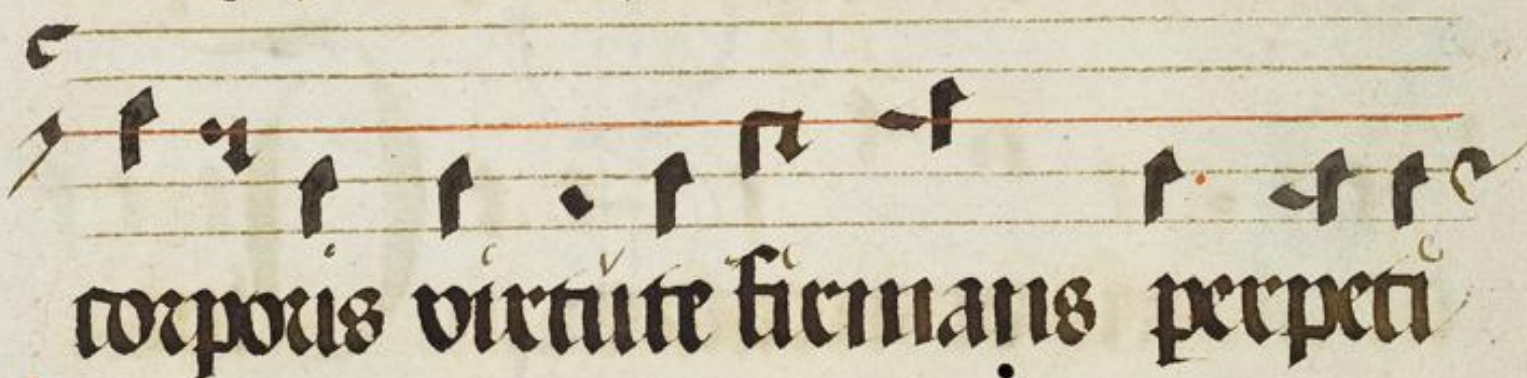 corporis virtute firmans perpeti